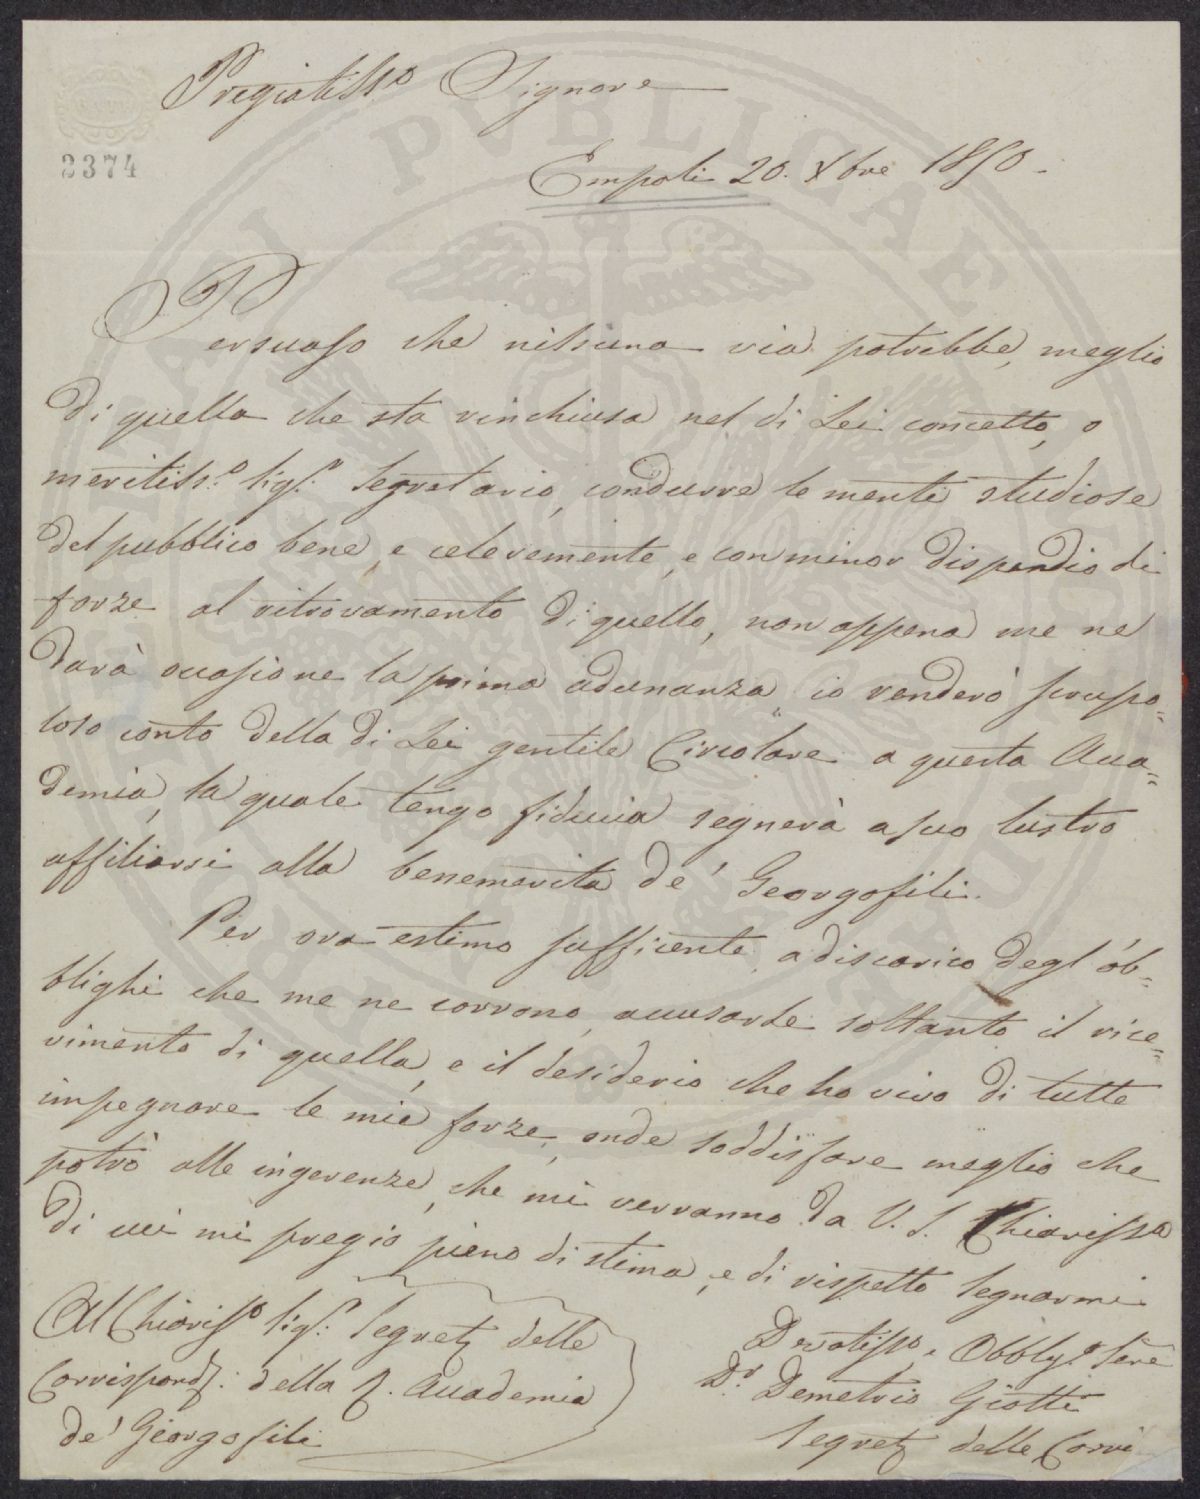 Pregiatissº Signore
2374
Empoli 20. Xbre 1850.
Persuaso che nissuna via potrebbe, meglio
di quella che sta rinchiusa nel di Lei concetto, o
meritissº Sigr. Segretario, condurre le menti studiose
del pubblico bene, e celeremente, e con minor dispendio di
forze al ritrovamento di quello, non appena me ne
darà occasione la prima adunanza, io renderò scrupo=
loso conto della di Lei gentile Circolare a questa Acca=
demia, la quale tengo fiducia segnerà a suo lustro
affiliarsi alla benemerita de' Georgofili.
Per ora estimo sufficente, a discarico degl'ob=
blighi che me ne corrono, accusarle soltanto il rice=
vimento di quella, e il desiderio che ho vivo di tutte
impegnare le mie forze, onde soddisfare meglio che
potrò alle ingerenze, che mi verranno da V. S. Chiarissa
di cui mi pregio pieno di stima, e di rispetto segnarmi
Al Chiarissº Sigr. Segret delle
Corrispond: della R. Accademia
de' Georgofili
Devotissº, Obblgº Serè
Dr. Demetrio Giotti
Segret delle Corri